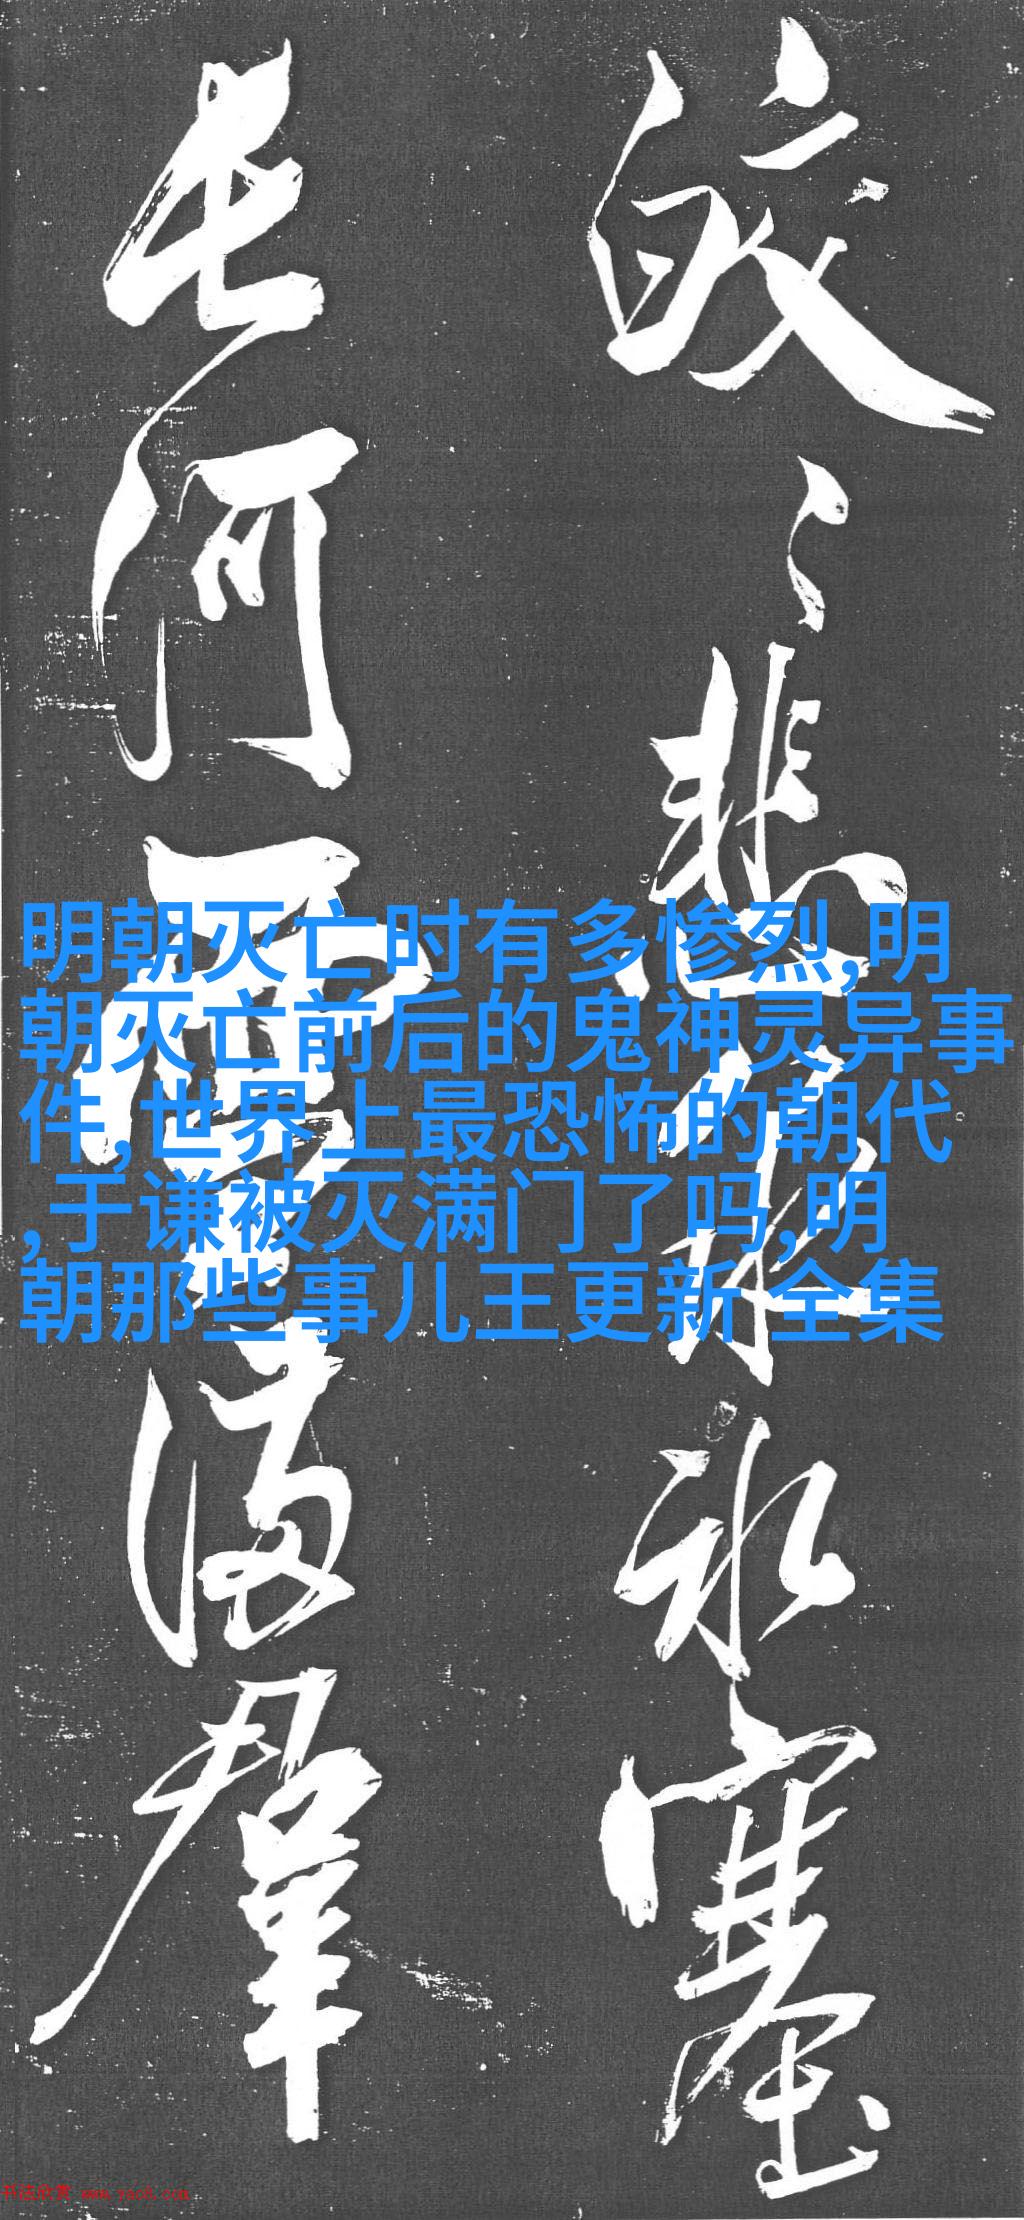 皎々悲泉氷塞
長河雪滿群
明朝灭亡时有多惨烈,明
朝灭亡前后的鬼神灵异事
件,世界上最恐怖的朝代
,于谦被灭满门了吗,明
朝那些事儿王更新 全集
书法欣赏 www.yac8.com